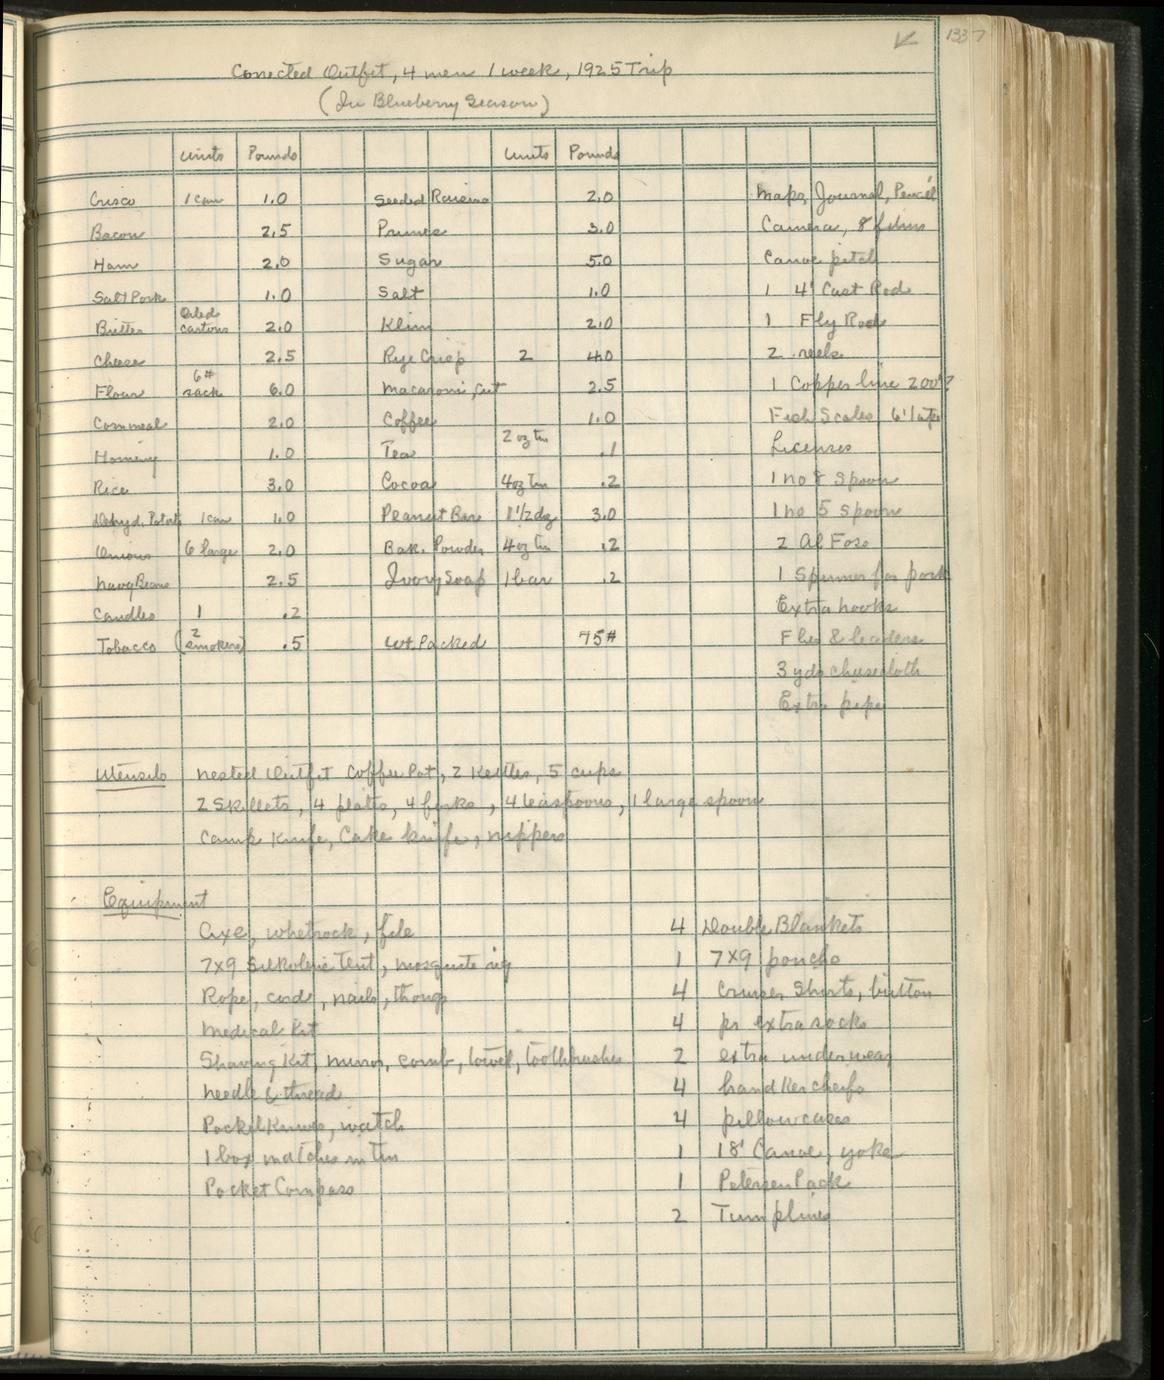 1337
Corrected Outfit, 4 men 1 week, 1925 Trip
(In Blueberry Season)
Units Pounds Units Pounds
Crisco 1 can 1.0 Seeded Raisins 2.0 Maps, Journal, Pencil
Bacon 2.5 Prunes 3.0 Camera, 8 films
Ham 2.0 Sugar 5.0 Canoe pitch
Salt Pork 1.0 Salt 1.0 1 4' Cast Rod
Butter Oiled cartons 2.0 Klim 2.0 1 Fly Rod
Cheese 2.5 Rye Crisp 2 4.0 2 reels
Flour 6# sack 6.0 Macaroni, cut 2.5 1 Copper line 200'?
Cornmeal 2.0 Coffee 1.0 Fish Scales, 6' tape
Hominy 1.0 Tea 2 oz tin .1 Licenses
Rice 3.0 Cocoa 4oz tin .2 1 no 8 Spoon
Dehyd. Potato 1 can 1.0 Peanut Bar 1 1/2 dz 3.0 1 no 5 spoon
Onions 6 large 2.0 Bak. Powder 4oz tin .2 2 Al Foss
Navy Beans 2.5 Ivory Soap 1 bar .2 1 Spinner for pork
Candles 1 .2 Extra hooks
Tobacco (2 smokers) .5 Wt. Packed 75# Flies & leaders
3 yds cheesecloth
Extra pipe
Utensils Nested Outfit Coffee Pot, 2 Kettles, 5 cups
2 Skillets, 4 plates, 4 forks, 4 teaspoons, 1 large spoon
Camp Knife, Cake knife, nippers
Equipment
Axe, whetrock, file 4 Double Blankets
7x9 Silkolene Tent, mosquito 1 7x9 poncho
Rope, cord, nails, thong 4 Cruiser Shirts, button
Medical Kit 4 pr extra socks
Shaving Kit, mirror, comb, towel, toothbrushes 2 extra underwear
needle & thread 4 handkerchefs
Pocket Knives, watch 4 pillowcases
1 box matches in tin 1 18' Canoe, yoke
Pocket Compass 1 Petersen Pack
2 Tumplines